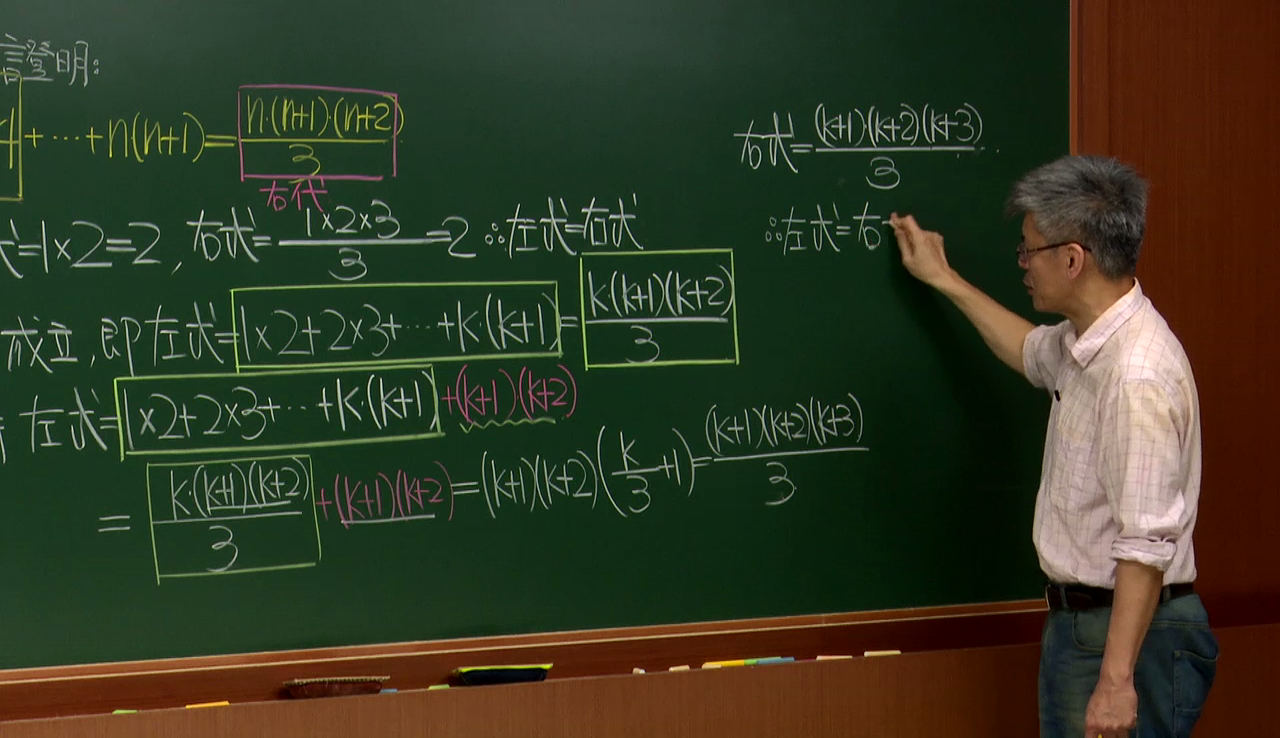 證明:
4+⋯+n(n+1)=\frac{n·(n+1)·(n+2)}{3}
右式
式=1×2=2,右式=\frac{1×2×3}{3}=2 ∴左式=右式
成立,即左式=1×2+2×3+⋯+k·(k+1)=\frac{k(k+1)(k+2)}{3}
左式=1×2+2×3+⋯+k·(k+1)+(k+1)·(k+2)
=\frac{k·(k+1)(k+2)}{3}+(k+1)(k+2)=(k+1)(k+2)(\frac{k}{3}+1)=\frac{(k+1)(k+2)(k+3)}{3}
右式=\frac{(k+1)·(k+2)(k+3)}{3}
∴左式=右